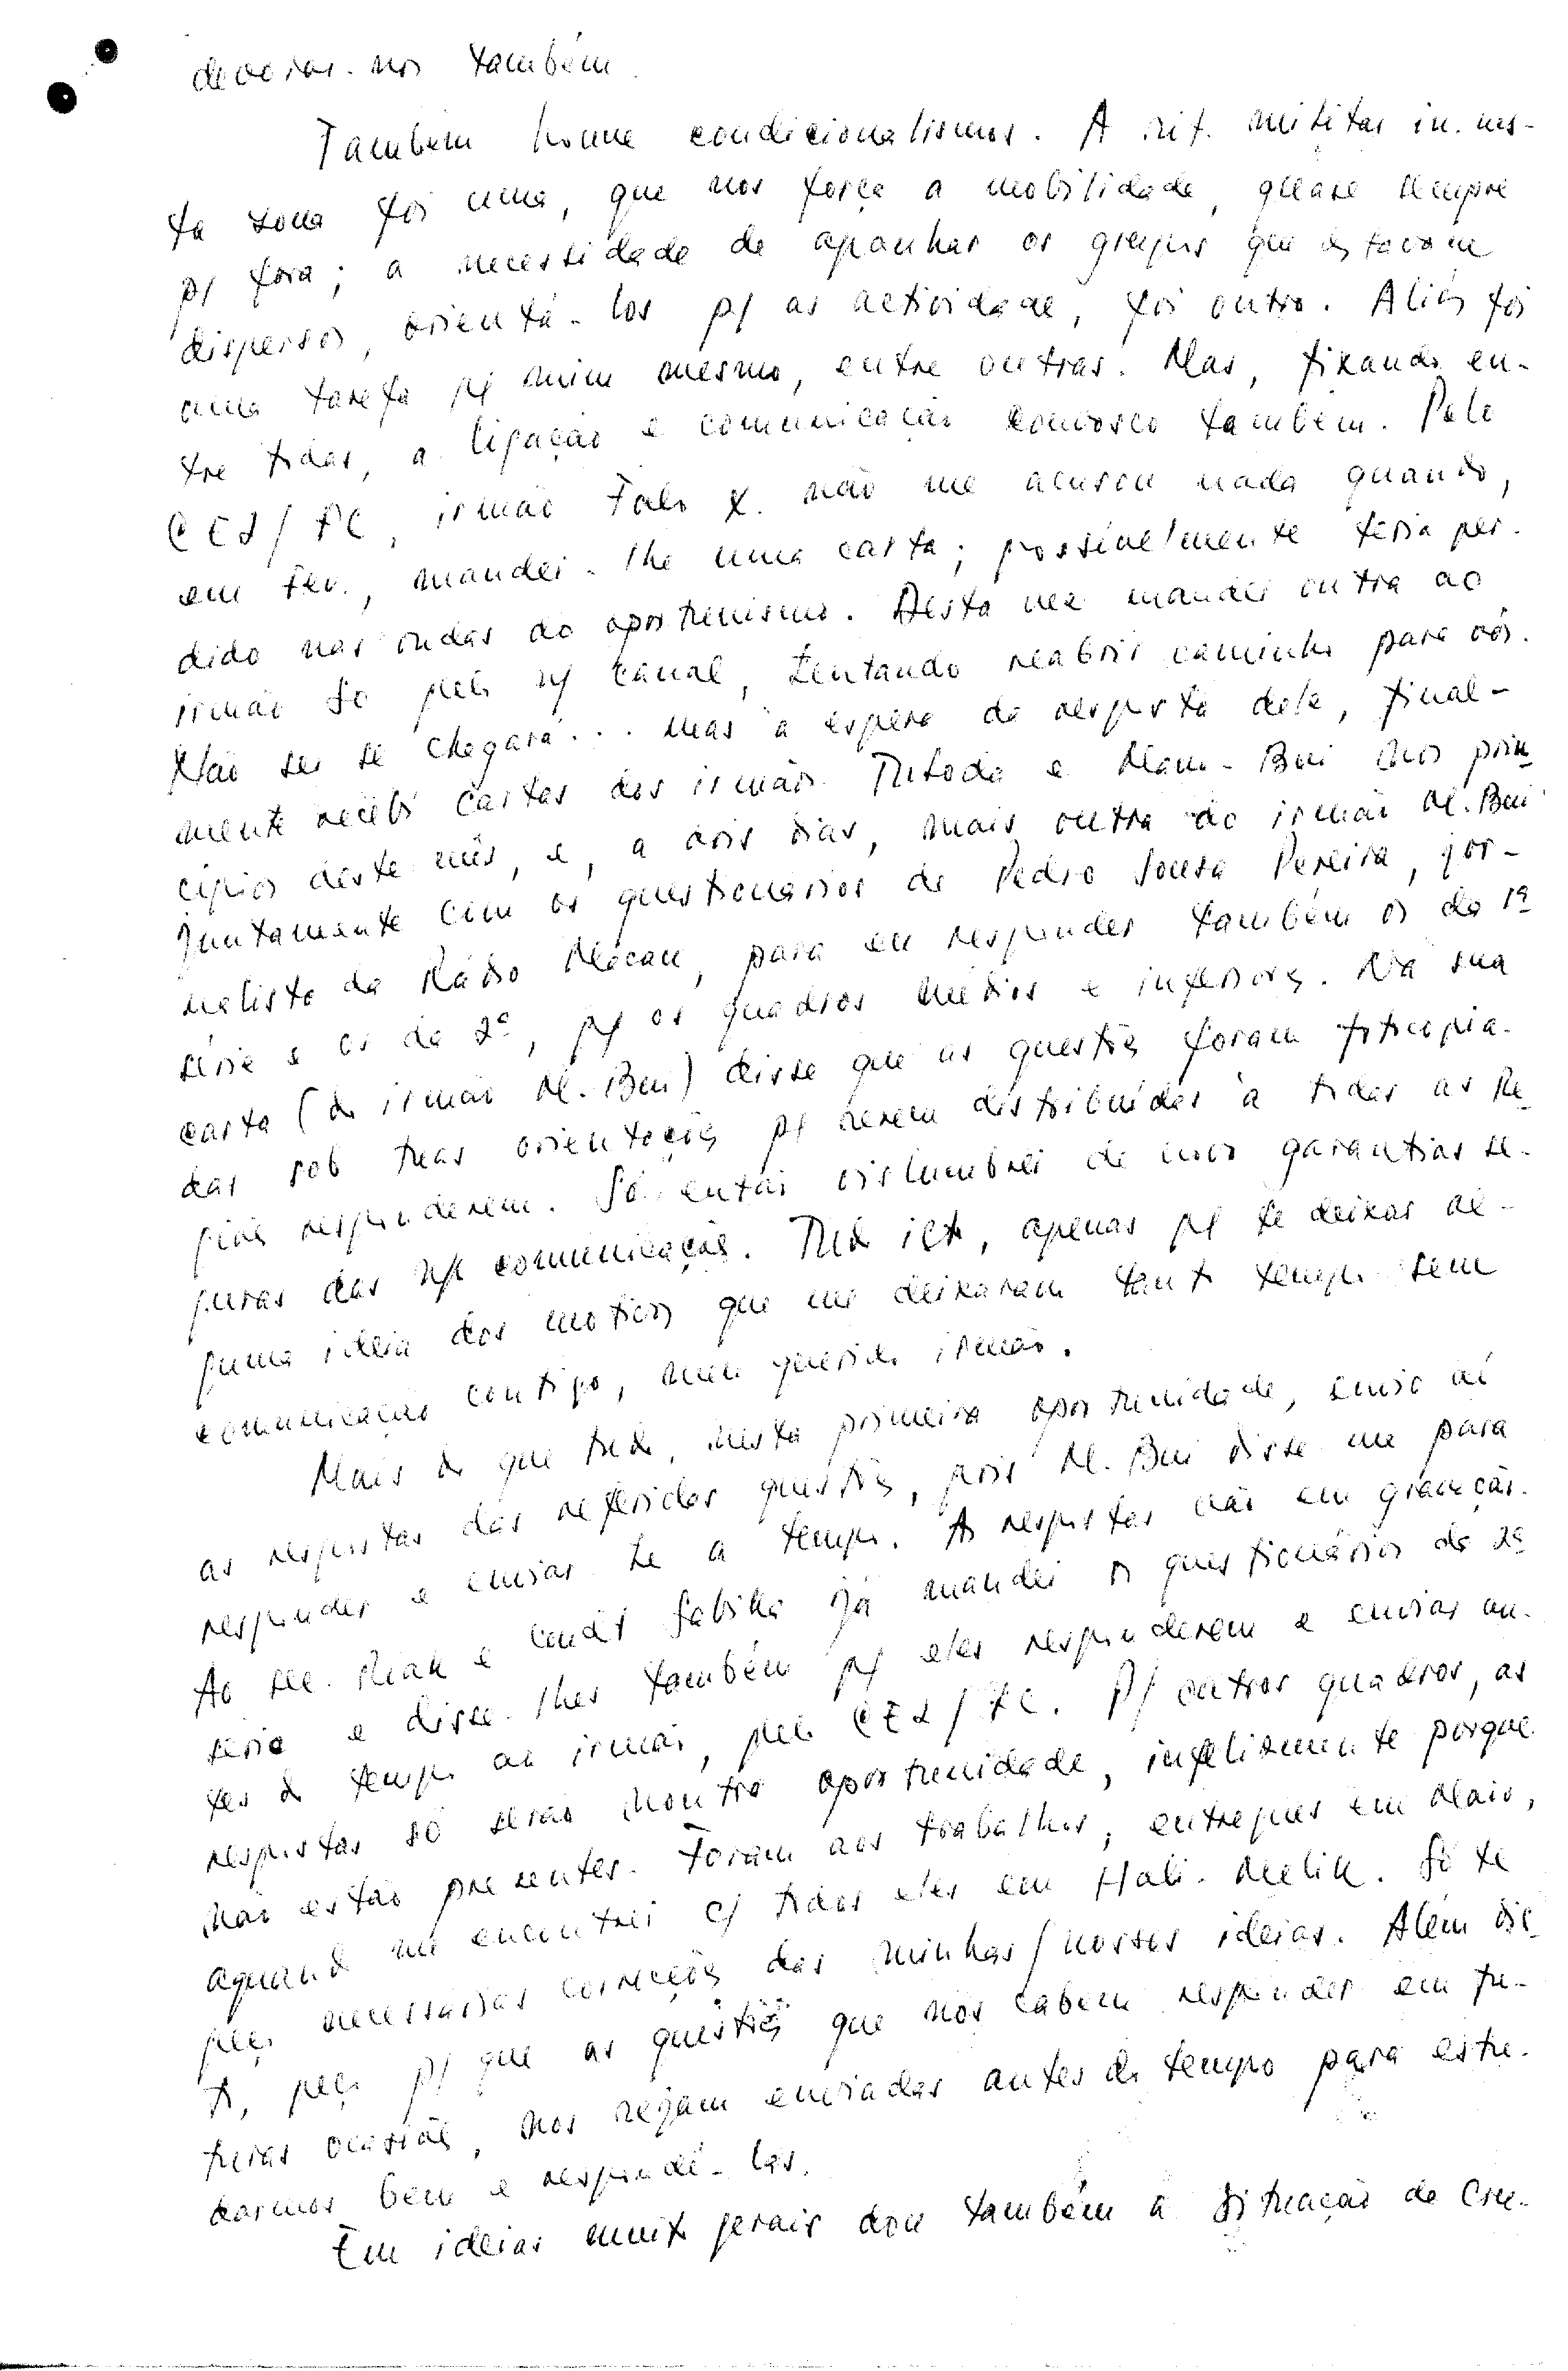 devorar-nos também.
Também houve condicionalismos. A sit. militar in. nes-
ta zona foi uma, que nos força a mobilidade, quase sempre
p/ fora; a necessidade de apanhar os grupos que estavam
dispersos, orientá-los p/ as actividade, foi outro. Aliás foi
uma tarefa p/ mim mesmo, entre outras. Mas, fixando en-
tre todas, a ligação e comunicação convosco também. Pelo
CEJ/FC, irmão Falo X. não me acusou nada quando,
em Fev., mandei-lhe uma carta; possivelmente teria per-
dido nas ondas do oportunismo. Desta vez mandei outra ao
irmão So pelo n/ canal, tentando reabrir caminho para vós.
Não sei se chegará... mas à espera da resposta dele, final-
mente recebi cartas dos irmãos Tuloda e Mau-Bui nos prin-
cípios deste mês, e, a dois dias, mais outra do irmão M. Bui
juntamente com os questionários de Pedro Sousa Pereira, jor-
nalista da Rádio Macau, para eu responder também os da 1ª
série e os da 2ª, p/ os quadros médios e inferiores. Na sua
carta (do irmão M. Bui) disse que as questões foram fotocopia-
das sob tuas orientações p/ serem distribuídas à todas as Re-
giões responderem. Só então vislumbrei de uns garantias se-
guras das n/s comunicações. Tudo isto, apenas p/ te deixar al-
guma ideia dos motivos que me deixaram tanto tempo sem
comunicação contigo, meu querido irmão.
Mais do que tudo, nesta primeira oportunidade, envio aí
as respostas das referidas questões, pois M. Bui disse me para
responder e enviar te a tempo. As respostas vão em gravação.
Ao sec. Riak e cmdt Sabika já mandei os questionários da 2ª
série e disse-lhes também p/ eles responderem e enviar an-
tes do tempo ao irmão, pelo CEJ/FC. P/ outros quadros, as
respostas só serão noutra oportunidade, infelizmente porque
não estão presentes. Foram aos trabalhos, entregues em Maio,
aquando me encontrei c/ todos eles em Hali-Melik. Só te
peço necessárias correcções das minhas/nossas ideias. Além dis-
to, peço p/ que as questões que nos cabem responder em fu-
turas ocasiões, nos sejam enviadas antes do tempo para estu-
darmos bem e respondê-las.
Em ideias muito gerais dou também a situação de Cru-